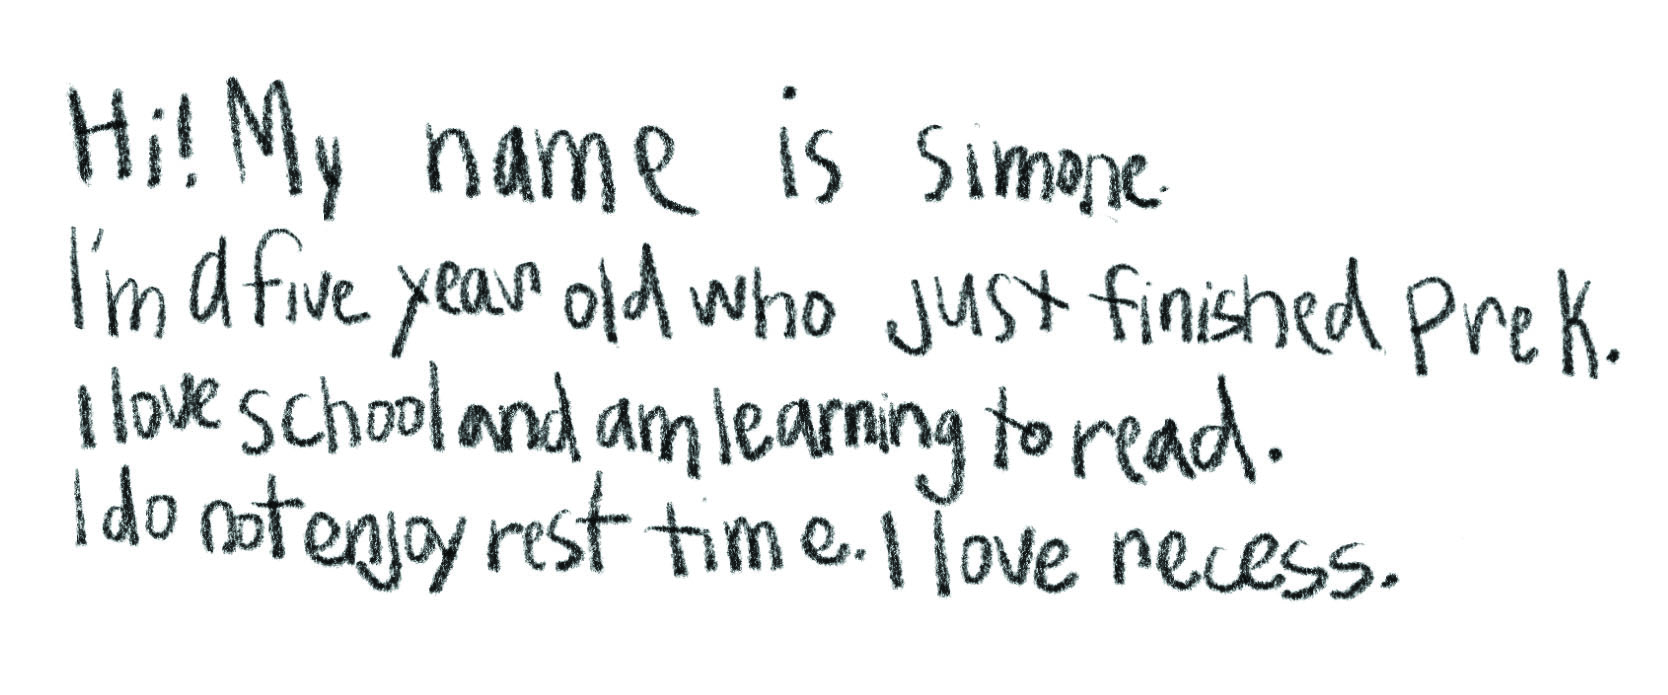 Hi! My name is simone.
I'm a five year old who just finished Pre K.
I love school and am learning to read.
I do not enjoy rest time. I love recess.